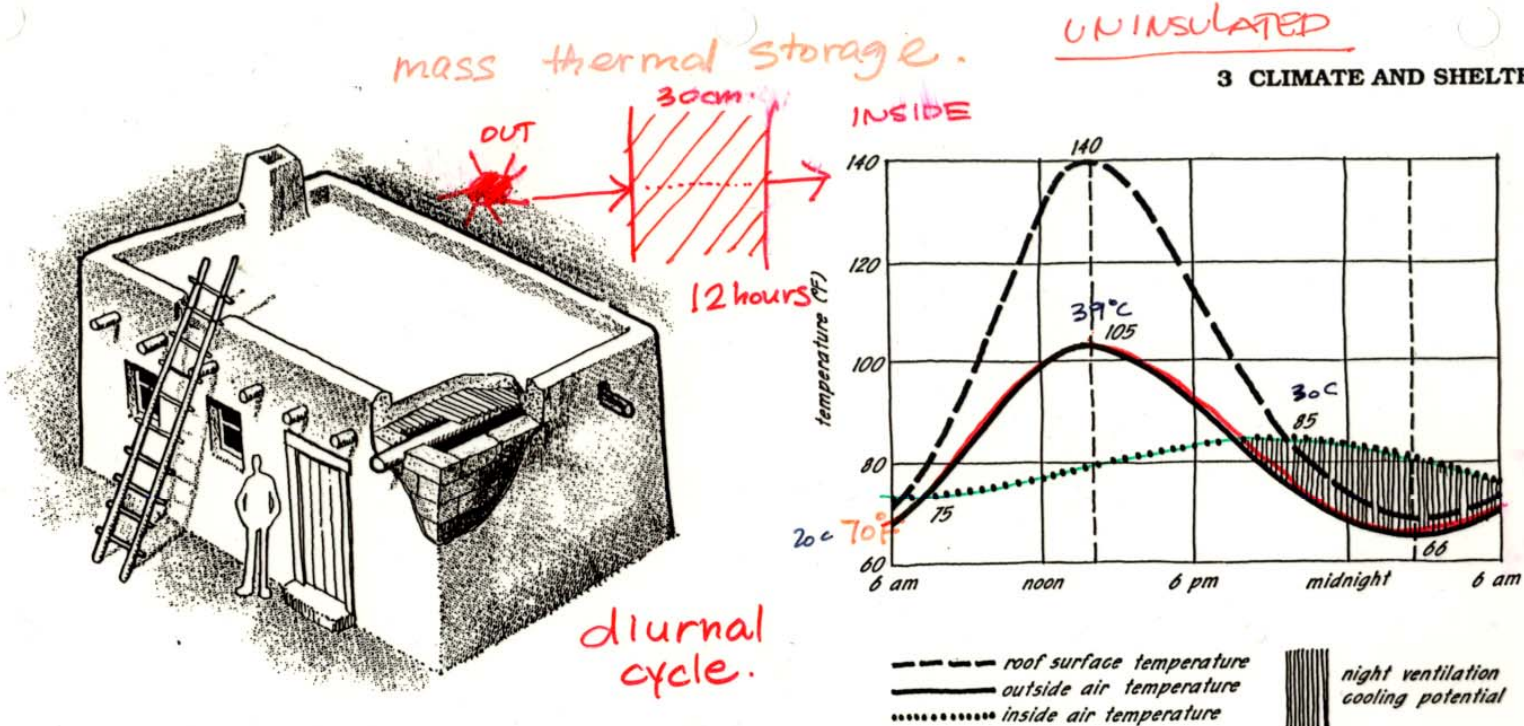 UNINSULATED
mass thermal storage.
3 CLIMATE AND SHELTE
30cm.
INSIDE
OUT
12 hours
diurnal
cycle.
temperature (°F)
140
120
100
80
60
140
39°C
105
30C
85
75
66
20C 70°F
6 am
noon
6 pm
midnight
6 am
roof surface temperature
outside air temperature
inside air temperature
night ventilation
cooling potential